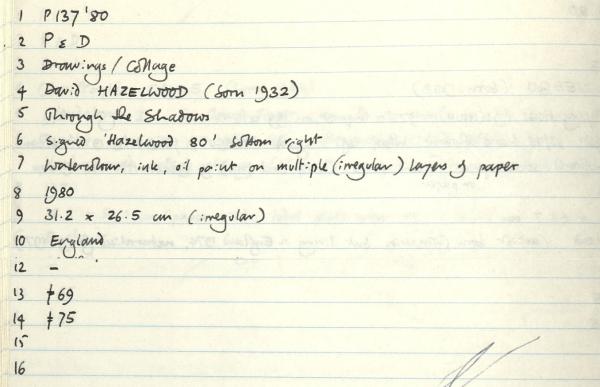 1 P137 '80
2 P & D
3 Drawings / Collage
4 David HAZELWOOD (born 1932)
5 Through the Shadows
6 signed 'Hazelwood 80' bottom right
7 Watercolour, ink, oil paint on multiple (irregular) layers of paper
8 1980
9 31.2 x 26.5 cm (irregular)
10 England
12 –
13 69
14 75
15
16